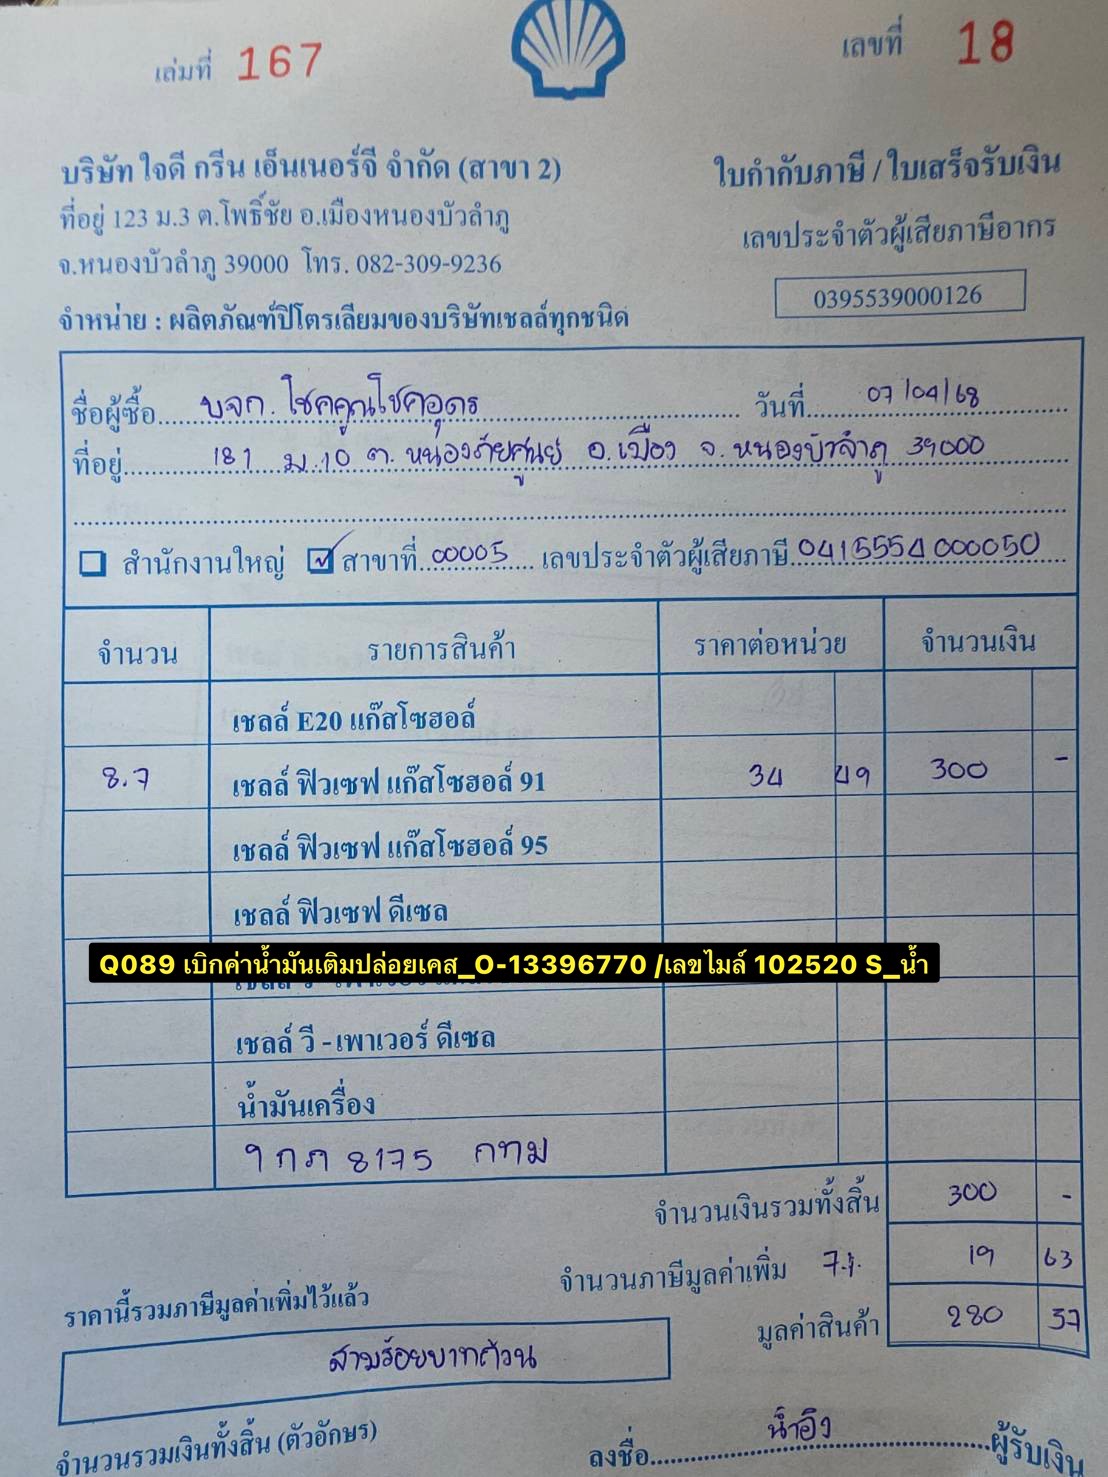 เล่มที่ 167
เลขที่ 18
บริษัท ใจดี กรีน เอ็นเนอร์จี จำกัด (สาขา 2)
ใบกำกับภาษี / ใบเสร็จรับเงิน
ที่อยู่ 123 ม.3 ต.โพธิ์ชัย อ.เมืองหนองบัวลำภู
เลขประจำตัวผู้เสียภาษีอากร
จ.หนองบัวลำภู 39000 โทร. 082-309-9236
0395539000126
จำหน่าย : ผลิตภัณฑ์ปิโตรเลียมของบริษัทเชลล์ทุกชนิด
ชื่อผู้ซื้อ บจก. โชคคูณโชคอุดร วันที่ 07/04/68
ที่อยู่ 181 ม.10 ต. หนองภัยศูนย์ อ.เมือง จ. หนองบัวลำภู 39000
สำนักงานใหญ่ สาขาที่ 00005 เลขประจำตัวผู้เสียภาษี 0415554000050
จำนวน รายการสินค้า ราคาต่อหน่วย จำนวนเงิน
เชลล์ E20 แก๊สโซฮอล์
8.7 เชลล์ ฟิวเซฟ แก๊สโซฮอล์ 91 34 49 300 -
เชลล์ ฟิวเซฟ แก๊สโซฮอล์ 95
เชลล์ ฟิวเซฟ ดีเซล
Q089 เบิกค่าน้ำมันเติมปล่อยเคส_O-13396770 /เลขไมล์ 102520 S_น้ำ
เชลล์ วี - เพาเวอร์ ดีเซล
น้ำมันเครื่อง
9 กภ 8175 กทม
จำนวนเงินรวมทั้งสิ้น 300 -
จำนวนภาษีมูลค่าเพิ่ม 7% 19 63
ราคานี้รวมภาษีมูลค่าเพิ่มไว้แล้ว
มูลค่าสินค้า 280 37
สามร้อยบาทถ้วน
จำนวนรวมเงินทั้งสิ้น (ตัวอักษร)
ลงชื่อ น้ำอิง ผู้รับเงิน